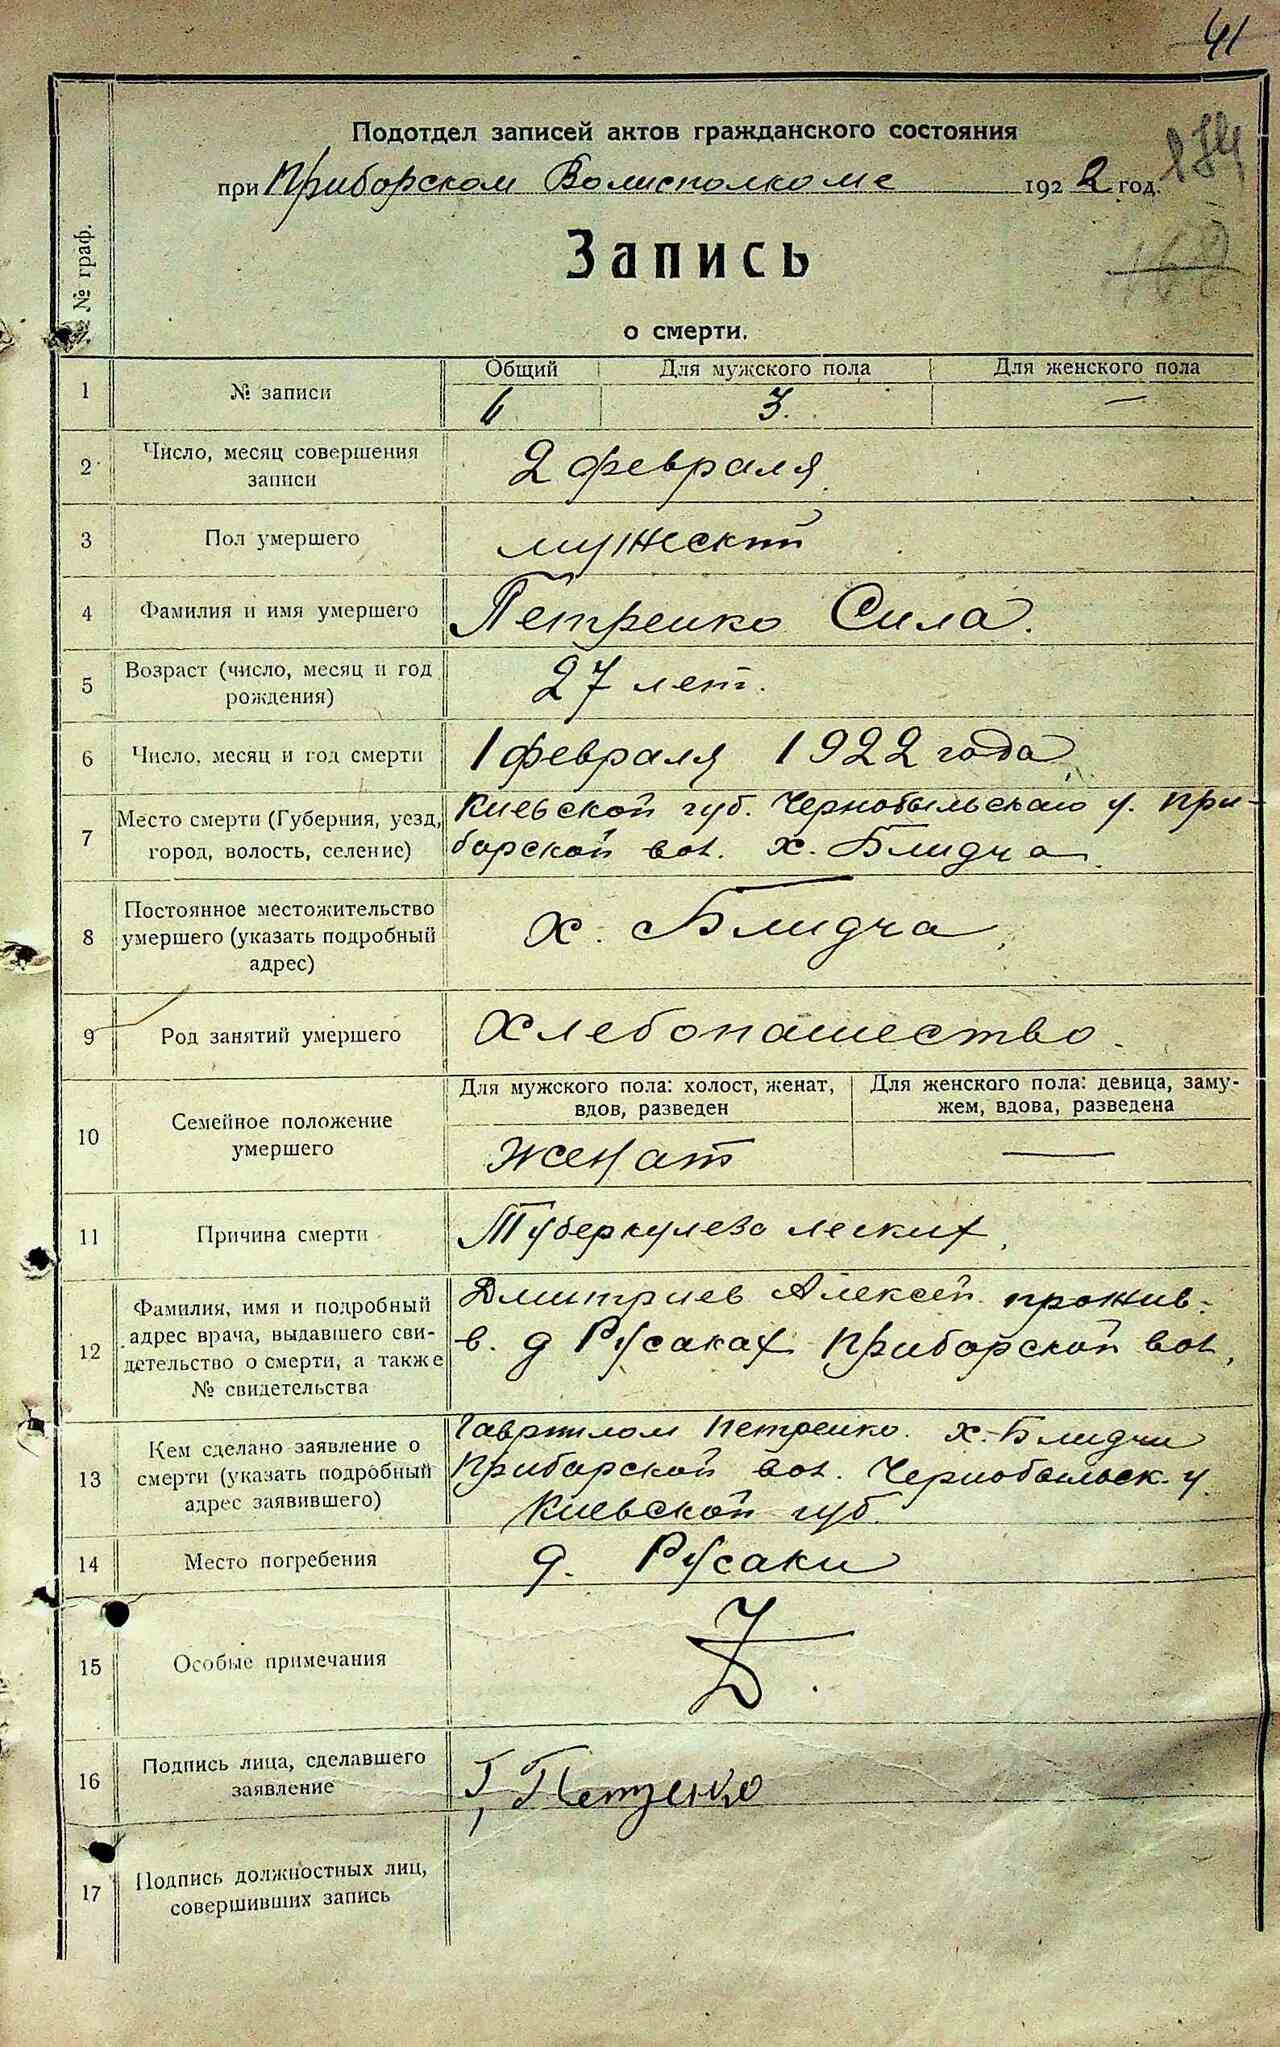 41
Подотдел записей актов гражданского состояния
при Приборском Волисполкоме 1922 год.
184
Запись
о смерти.
№ граф.
Общий Для мужского пола Для женского пола
1 № записи 6 3. —
2 Число, месяц совершения
записи
2 февраля
3 Пол умершего мужеский
4 Фамилия и имя умершего Петренко Сила.
5 Возраст (число, месяц и год
рождения)
27 лет.
6 Число, месяц и год смерти 1 февраля 1922 года
7 Место смерти (Губерния, уезд,
город, волость, селение)
Киевской губ. Чернобыльскаго у. При-
борской вол. х. Блидча
8 Постоянное местожительство
умершего (указать подробный
адрес)
х. Блидча
9 Род занятий умершего Хлебопашество.
10 Семейное положение
умершего
Для мужского пола: холост, женат,
вдов, разведен
Для женского пола: девица, заму-
жем, вдова, разведена
женат —
11 Причина смерти Туберкулезо легких,
12 Фамилия, имя и подробный
адрес врача, выдавшего сви-
детельство о смерти, а также
№ свидетельства
Дмитриев Алексей прожив-
в. д Русаках Приборской вол,
13 Кем сделано заявление о
смерти (указать подробный
адрес заявившего)
Гаврилом Петренко. х. Блидчи
Приборской вол. Чернобыльск. у.
Киевской губ.
14 Место погребения д. Русаки
15 Особые примечания
16 Подпись лица, сделавшего
заявление
Г, Петренко
17 Подпись должностных лиц,
совершивших запись